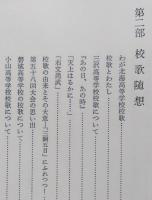 第二部 校歌随想
わが北海高等学校校歌
校歌とわたし
三沢高等学校校歌について
『あの日、あの時』
「天上はるかに……」
「右文尚武」
校歌の由来とその大意―「三綱五目」とふれつつ―
第五十八回大会の思い出
磐城高等学校の校歌について
小山高等学校校歌について